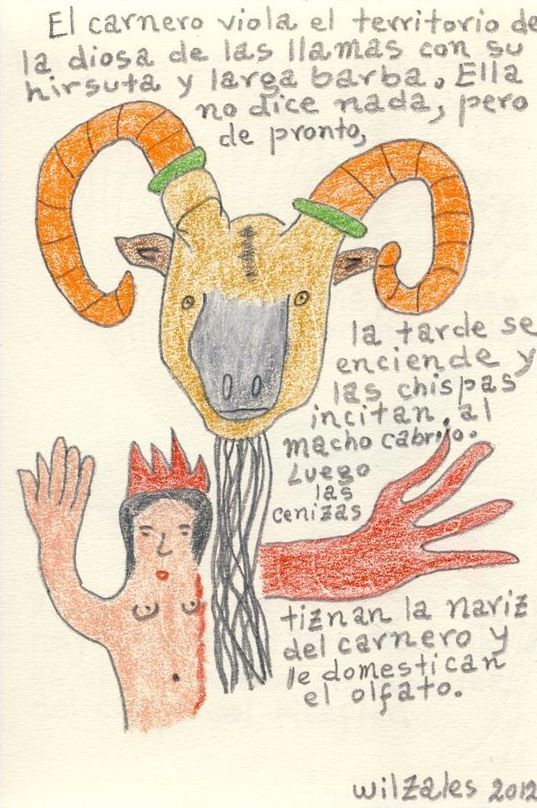 El carnero viola el territorio de
la diosa de las llamas con su
hirsuta y larga barba. Ella
no dice nada, pero
de pronto,
la tarde se
enciende y
las chispas
incitan al
macho cabrío.
Luego
las
cenizas
tiznan la nariz
del carnero y
le domestican
el olfato.
wilzales 2012